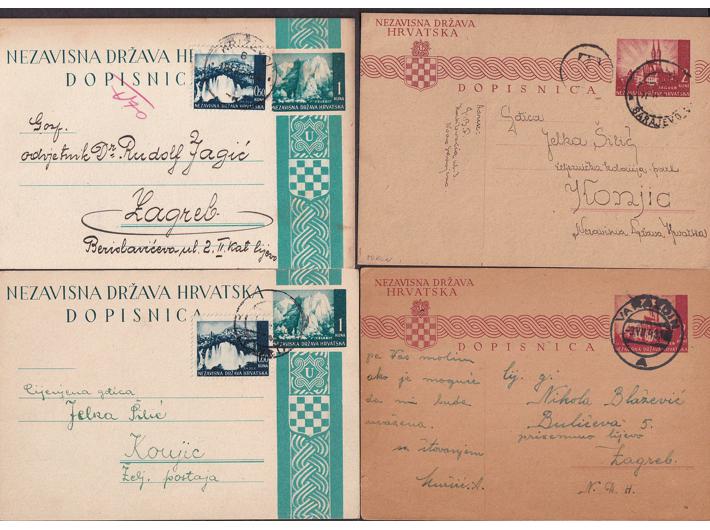 NEZAVISNA DRŽAVA
DOPISNICA
KRIŽEVCI
8
0.50
KUNA
NEZAVISNA DRŽAVA HRVATSKA
1
KUNA
NEZAVISNA DRŽAVA HRVATSKA
U
Gosp.
odvjetnik Dr. Rudolf Jagić
Zagreb
Berislavićeva ul. 2. II. kat lijevo
NEZAVISNA DRŽAVA
HRVATSKA
DOPISNICA
2
KUNA
NEZAVISNA DRŽAVA HRVATSKA
SARAJEVO
Gdica
Jelka Šilić
željeznička kolonija
Konjic
Nezavisna Država Hrvatska
NEZAVISNA DRŽAVA HRVATSKA
DOPISNICA
0.50
KUNA
NEZAVISNA DRŽAVA HRVATSKA
1
KUNA
NEZAVISNA DRŽAVA HRVATSKA
U
Cijenjena gdica
Jelka Šilić
Konjic
Želj. postaja
NEZAVISNA DRŽAVA
HRVATSKA
DOPISNICA
VARAŽDIN
NEZAVISNA DRŽAVA HRVATSKA
pa Vas molim
ako je moguće
da mi bude
uvažena.
sa štovanjem
Cij. gi
Nikola Blažević
Bulićeva 5.
prizemno lijevo
Zagreb.
N. D. H.